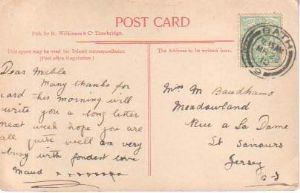 POST CARD
Pub. by R. Wilkinson & Co. Trowbridge.
This space may be used for Inland correspondence.
The Address to be written here.
BATH
Dear Mable
Many thanks for
card this morning will
write you a long letter
next week hope you are
all quite well am very
busy with fondest love
Maud x x x x x x x x
Mrs M Baudhams
Meadowland
Rue a La Dame
St Saviours
Jersey
C. I